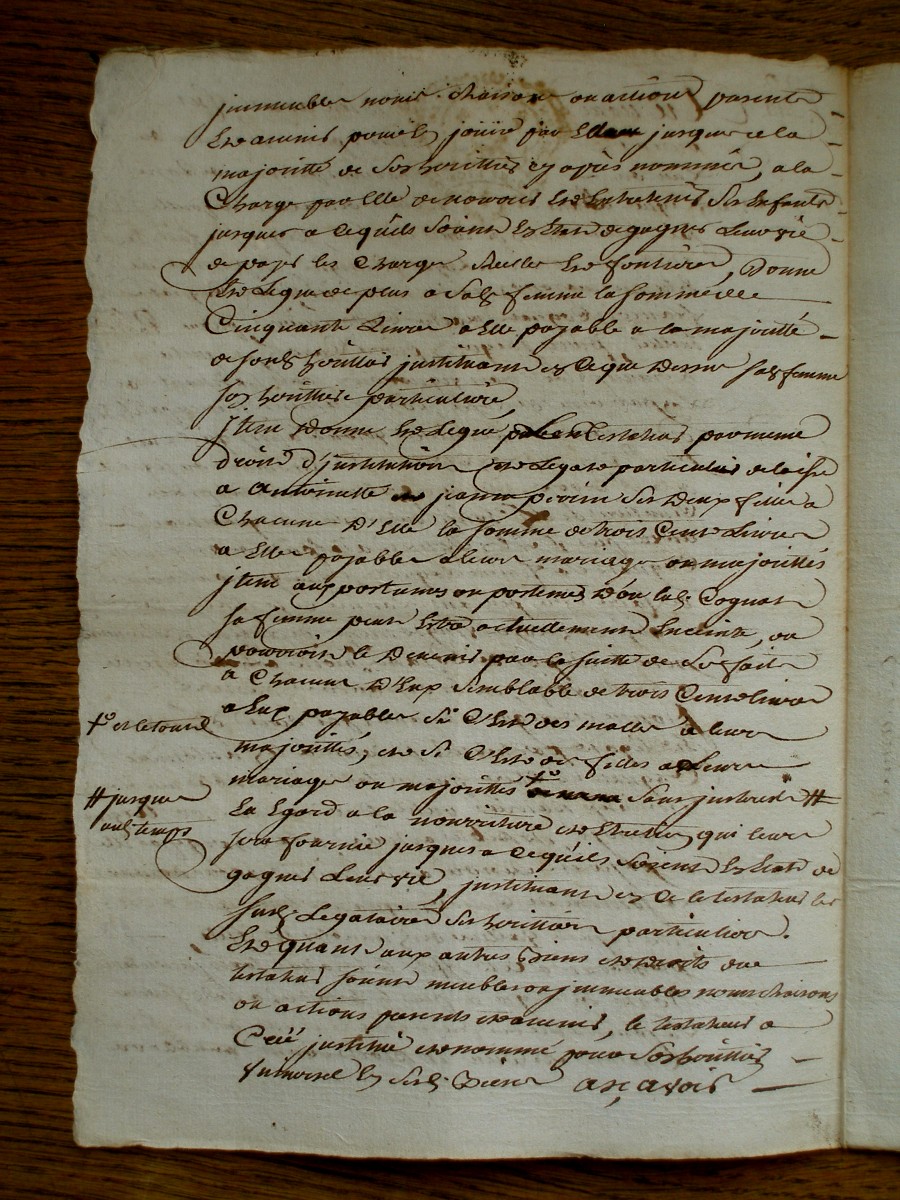 jmmeubles noms Raisons ou actions parents
et avenir pour les jouir par elle jusques a la
majoritté de Ses herittiers cy apres nommés, a la
Charge par elle de nourrir et entretenir Ses enfants
jusques a ce quils soient en etat de gagner Leur vie
de payer les Charges Reelles et fonsieres, Donne
et Legue de plus a sad. femme la somme de
Cinquante Livres a elle payable a la majoritté
de sesd. herittiers jnstituant en ce que dessus sad. femme
son herittiere particuliere
jtem donne et Legue led. testateur par meme
droit d'jnstitution et Legat particulier delaisse
a antoinette et jeanne perrin Ses deux filles a
Chacune d'Elle la somme de trois Cents Livres
a Elles payable a leurs mariage ou majorittés
jtem aux postumes ou postumes dou lad. Cognat
sa femme peut estre actuellement enceinte, ou
pourroit le devenir par la suitte de Ses faits
a Chacun D'Eux Semblable de trois Cents livres
a Eux payables Si C'est des malles a leurs
majorittés, et Si C'est des filles a Leurs
mariage ou majorittés Sans jnterets #
En Egard a la nourriture et entretien qui leurs
sera fournie jusques a ce quils Soient en etat de
gagner Leur vie, jnstituant en ce le testateur les
susd. Legataires Ses herittiers particuliers.
Et quant aux autres Biens et droits dud.
testateur soient meubles ou jmmeubles noms Raisons
ou actions parents et avenir, le testateur a
Créé jnstitué et nommé pour Ses herittiers
Universel en Sesd. Biens asçavoir
# jusques
aud. temps